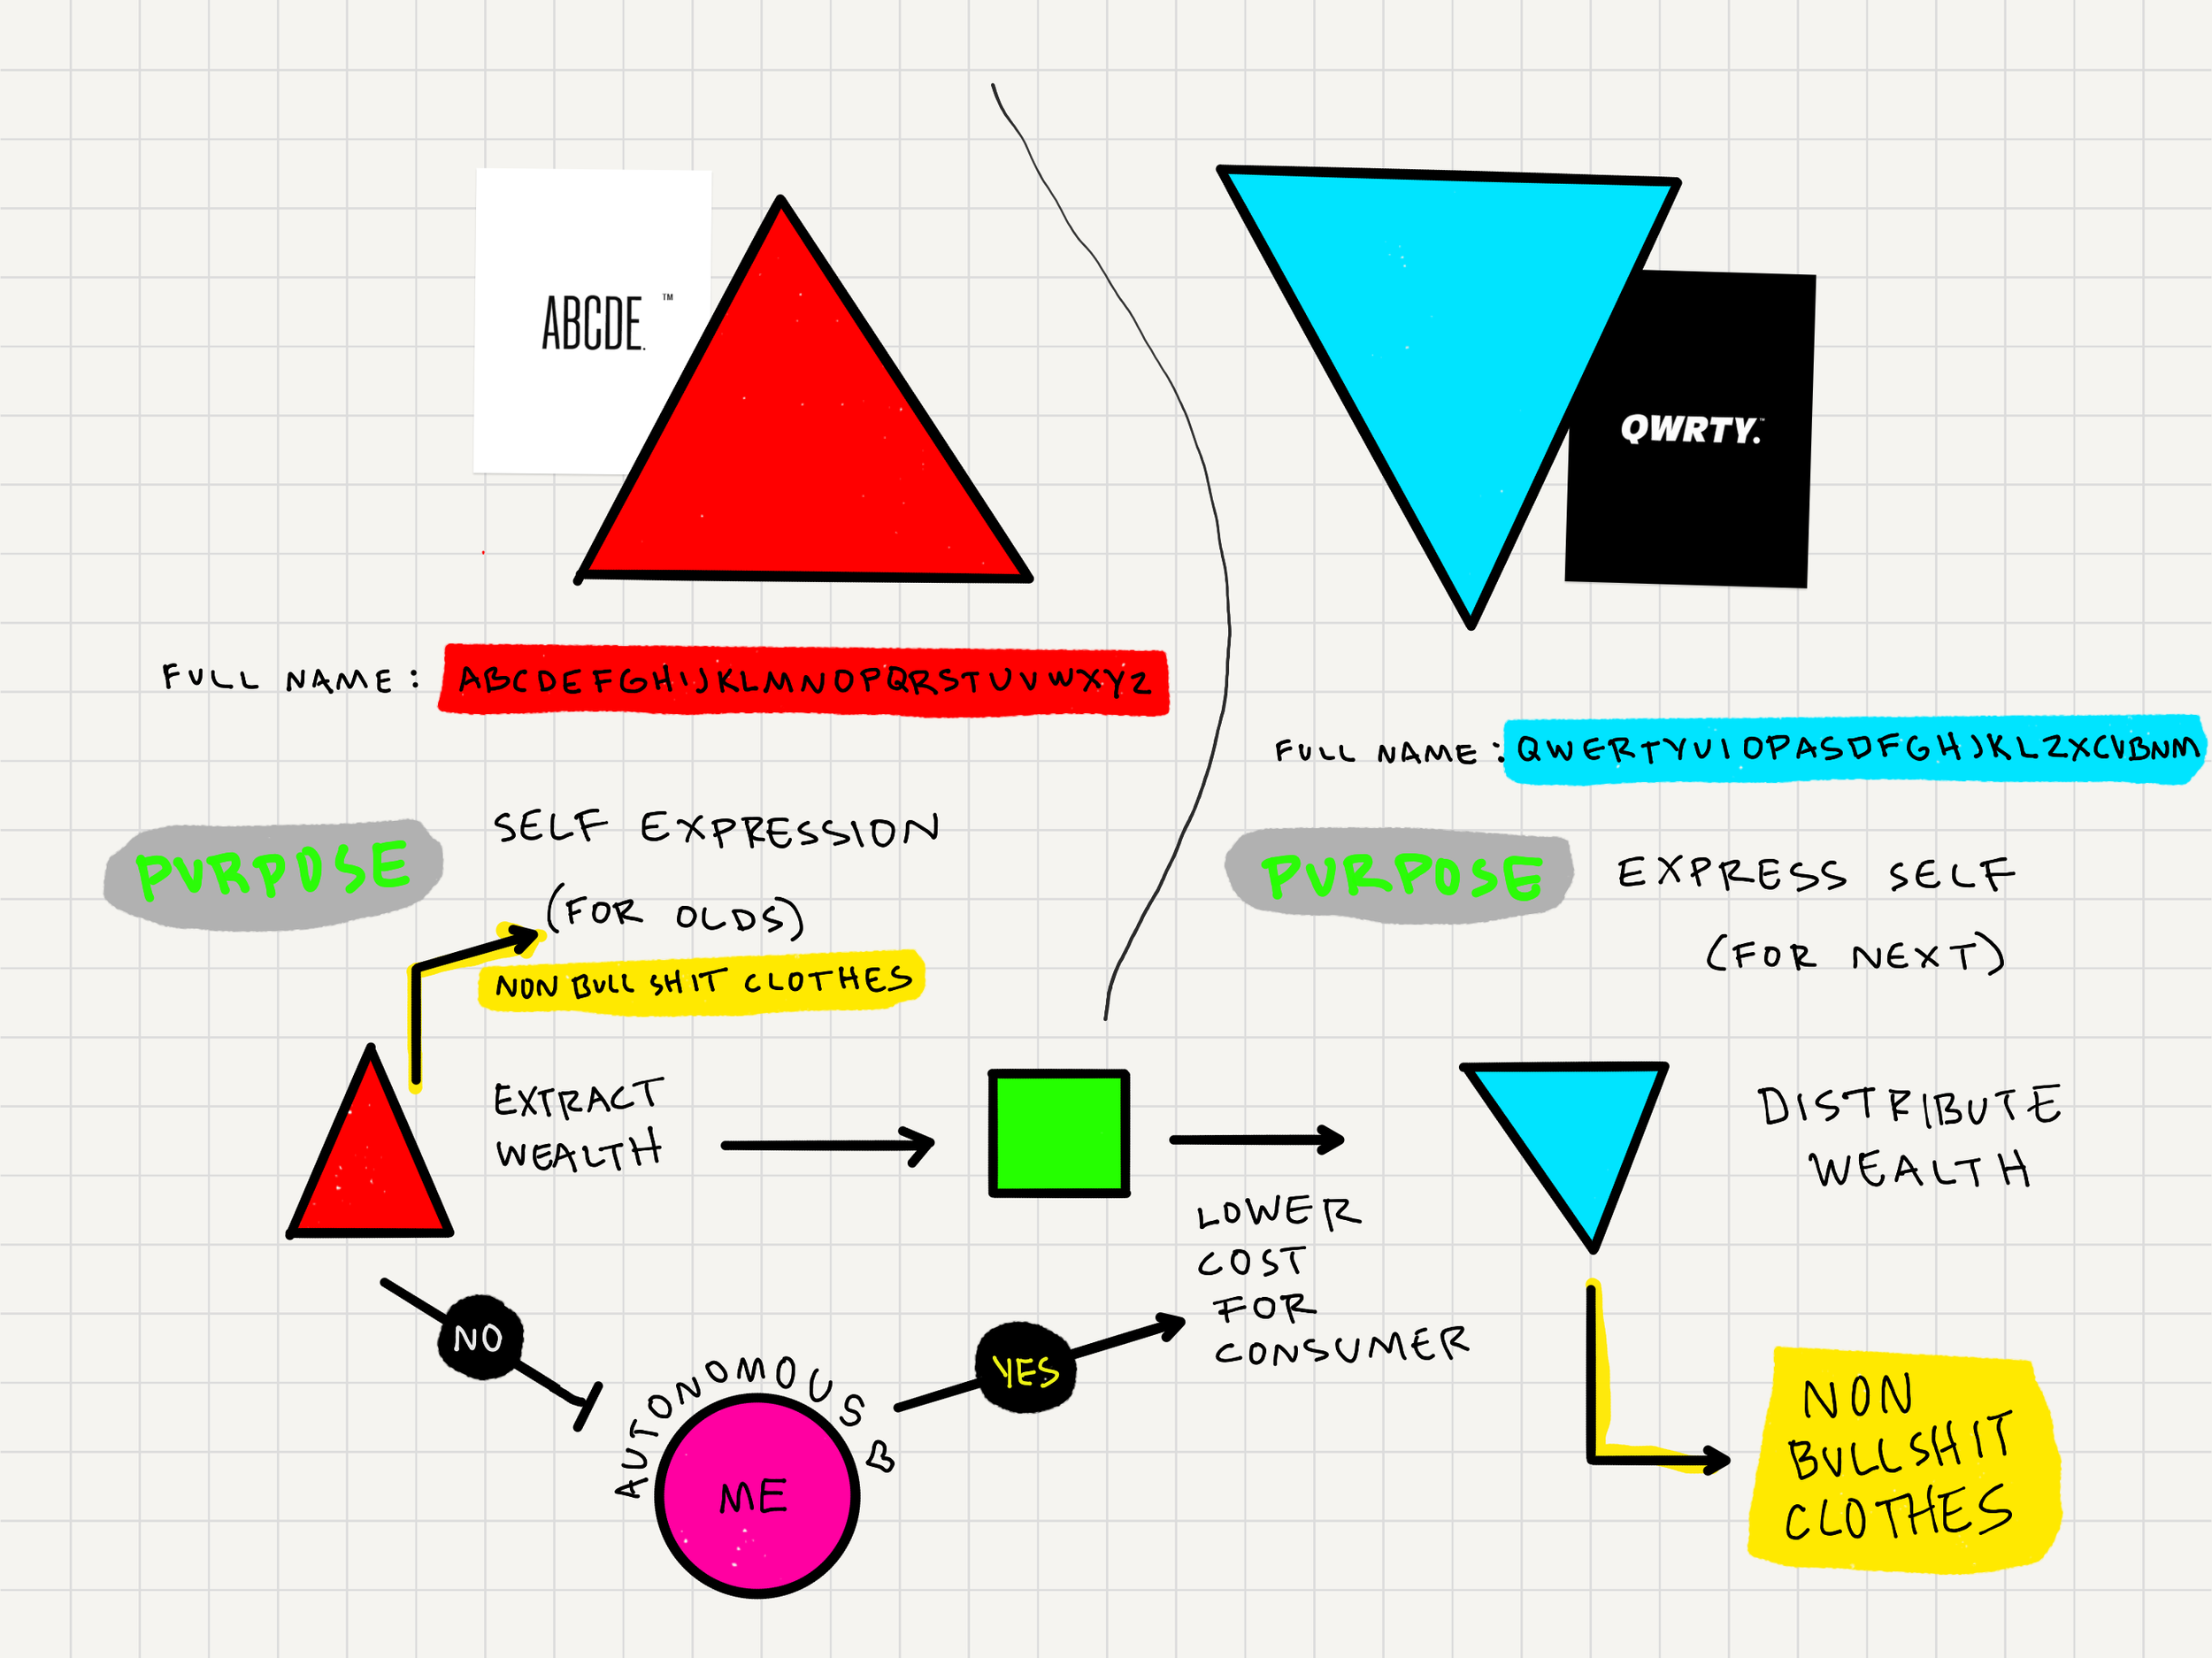 ABCDE.™
QWRTY.™
FULL NAME: ABCDEFGHIJKLMNOPQRSTUVWXYZ
FULL NAME: QWERTYUIOPASDFGHJKLZXCVBNM
PURPOSE
SELF EXPRESSION
(FOR OLDS)
NON BULL SHIT CLOTHES
PURPOSE
EXPRESS SELF
(FOR NEXT)
EXTRACT
WEALTH
DISTRIBUTE
WEALTH
LOWER
COST
FOR
CONSUMER
NO
YES
AUTONOMOUS B
ME
NON
BULLSHIT
CLOTHES